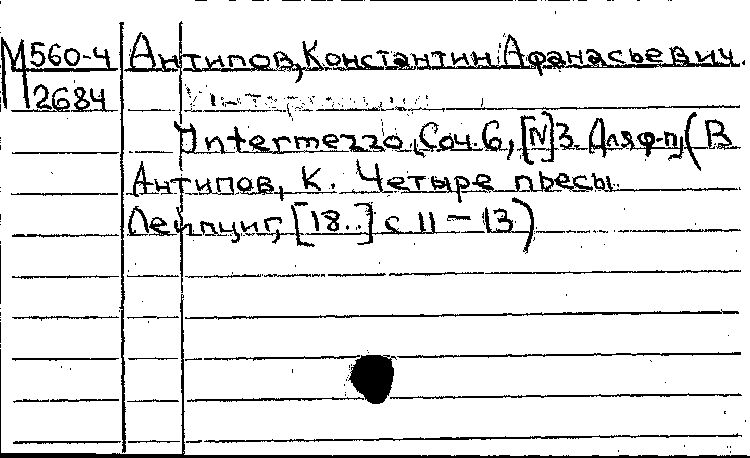 М560-4 Антипов, Константин Афанасьевич.
2684
Intermezzo, Соч. 6, [N] 3. Для ф-п, (В
Антипов, К. Четыре пьесы.
Лейпциг, [18..] с 11 – 13)